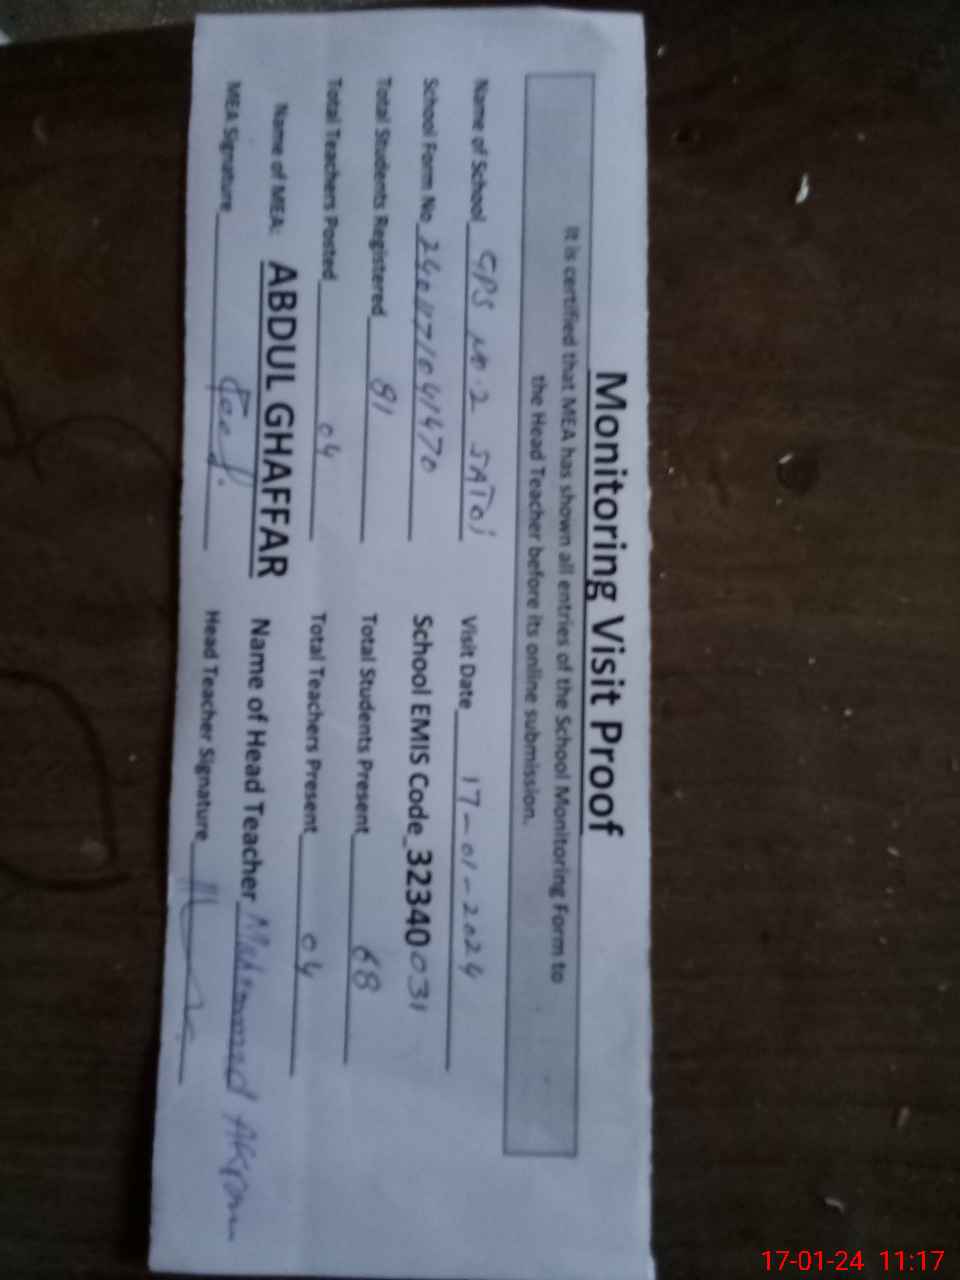 Monitoring Visit Proof
It is certified that MEA has shown all entries of the School Monitoring Form to
the Head Teacher before its online submission.
Name of School GPS No.2 SATOI Visit Date 17-01-2024
School Form No School EMIS Code 32340031
Total Students Registered 81 Total Students Present 68
Total Teachers Posted 04 Total Teachers Present 04
Name of MEA: ABDUL GHAFFAR Name of Head Teacher Mohammad Akram
MEA Signature Head Teacher Signature
17-01-24 11:17